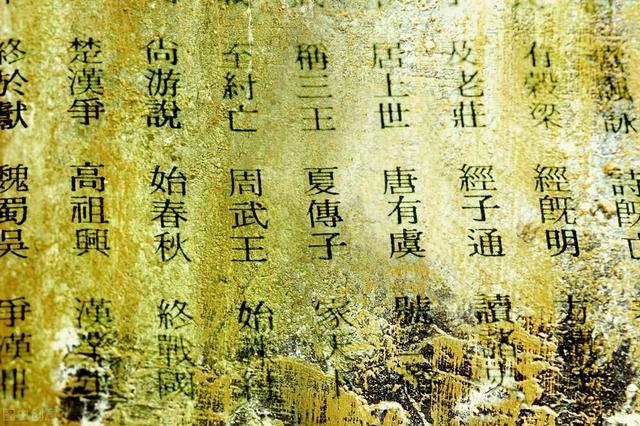 諷詠 詩既亡
有穀梁 經既明 方
及老莊 經子通 讀諸
居上世 唐有虞 號二
稱三王 夏傳子 家天下
至紂亡 周武王 始誅紂
尚游說 始春秋 終戰國
楚漢爭 高祖興 漢業建
終於獻 魏蜀吳 爭漢